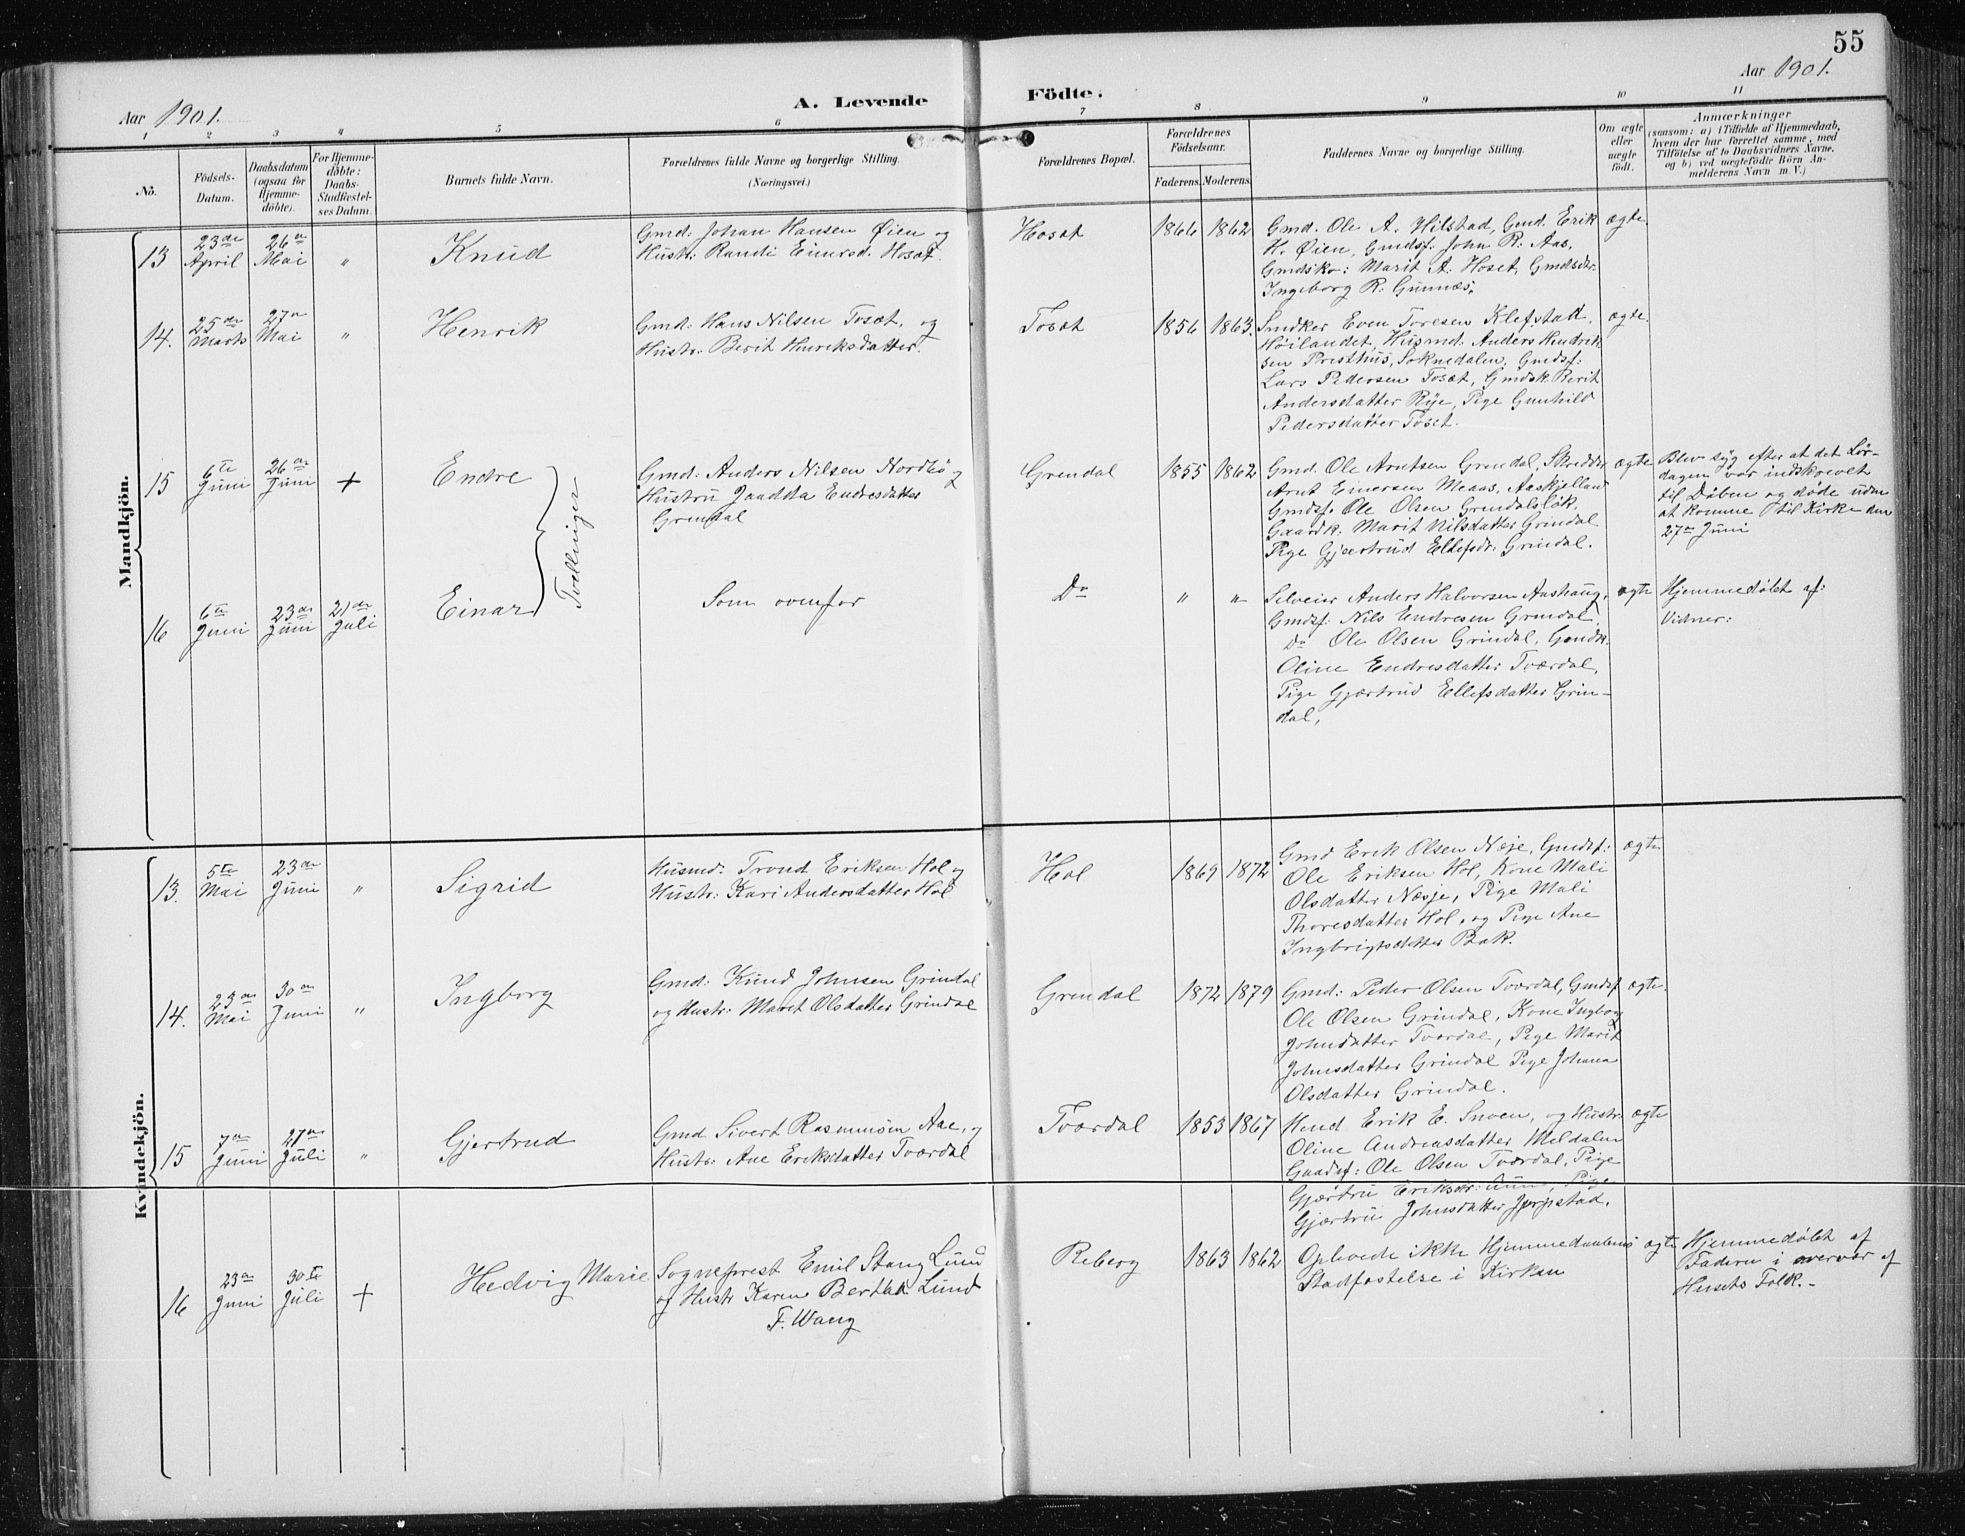 55
Aar 1901.
A. Levende Födte.
Aar 1901.
1 2 3 4 5 6 7 8 9 10 11
No.
Födsels-
Datum.
Daabsdatum
(ogsaa for
Hjemme-
döbte).
For Hjemme-
döbte:
Daabs-
Stadfæstel-
ses Datum.
Barnets fulde Navn.
Forældrenes fulde Navne og borgerlige Stilling.
(Næringsvei.)
Forældrenes Bopæl.
Forældrenes
Födselsaar.
Faderens. Moderens.
Faddernes Navne og borgerlige Stilling.
Om ægte
eller
uægte
födt.
Anmærkninger
(saasom: a) i Tilfælde af Hjemmedaab,
hvem der har forrettet samme, med
Tilföielse af to Daabsvidners Navne.
og b) ved uægtefödte Börn An-
melderens Navn m. V.)
Mandkjön.
13
23de
April
26de
Mai
"
Knud
Gmd. Johan Hansen Øien og
Hustr: Randi Einersd. Hosæt.
Hosæt
1866 1862
Gmd. Ole A. Hilstad, Gmd. Erik
H. Øien, Gmdsf. John R. Aas,
Gmdsko: Marit A. Hoset, Gmdsdtr.
Ingeborg R. Gunnes.
ægte
14.
25de
Marts
27de
Mai
"
Henrik
Gmd: Hans Nilsen Tosæt, og
Hustr. Berit Henriksdatter.
Tosæt
1856 1863.
Smdker Even Toresen Klefstak,
Høilandet, Husmd. Anders Hendrik
sen Presthus, Soknedalen, Gmdsf:
Lars Pedersen Tosæt, Gmdsk. Berit
Andersdatter Rye, Pige Gunhild
Pedersdatter Toset.
ægte.
15
6te
Juni
26de
Juni
+
Endre
Gmd: Anders Nilsen Nordbø og
Hustru Jaadda Endresdatter
Grendal
Grendal
1855 1862
Gmd. Ole Arntsen Grendal, Skredder
Arnt Einersen Meaas, Aaskjelland
Gmdsf. Ole Olsen Grendalsløk,
Gaardk: Marit Nilsdatter Grindal
Pige Gjertrud Ellefsdr. Grindal.
ægte
Blev syg efter at det Lør-
dagen var indskrevet
til Døben og døde uden
at komme til Kirke den
27de Juni
Tvillinger
16
6te
Juni
23de
Juni
21de
Juli
Einar
Som ovenfor
Do
" "
Selveier Anders Halvorsen Aashaug,
Gmdsf: Nils Endresen Grendal,
Do Ole Olsen Grindal, Gmdk.
Oline Endresdatter Tværdal,
Pige Gjærtrud Ellefsdatter Grin-
dal,
ægte
Hjemmedøbt af:
Vidner:
Kvindekjön.
13.
5te
Mai
23de
Juni
"
Sigrid
Husmd: Trond Eriksen Hol og
Hustr: Kari Andersdatter Hol
Hol
1869 1872
Gmd Erik Olsen Neje, Gmdsf:
Ole Eriksen Hol, Kone Mali
Olsdatter Næsje, Pige Mali
Thoresdatter Hol, og Pige Ane
Ingbrigtsdatter Bak.
ægte
14.
23de
Mai
30de
Juni
"
Ingborg
Gmd: Knud Johnsen Grindal
og Hustr: Marit Olsdatter Grindal
Grendal
1872 1879
Gmd: Peder Olsen Tværdal, Gmdsf
Ole Olsen Grindal, Kone Ingborg
Johnsdatter Tværdal, Pige Marit
Johnsdatter Grindal Pige Johana
Olsdatter Grindal.
ægte.
15
7de
Juni
27de
Juli
"
Gjertrud
Gmd Sivert Rasmusøn Aae, og
Hustr: Ane Eriksdatter Tværdal
Tværdal
1853 1867
Hmd Erik E. Snoen, og Hustr.
Oline Andreasdatter Meldalen
Gaadsf: Ole Olsen Tværdal, Pige
Gjærtru Eriksdr: Aune, Pige
Gjærtru Johnsdatter Jerpstad.
ægte
16
23de
Juni
30te
Juli
+
Hedvig Marie
Sogneprest Emil Stang Lund
og Hustr Karen Berthea Lund
F. Wang
Reberg
1863 1862
Oplevede ikke Hjemmedaabens
Stadfæstelse i Kirken
ægte
Hjemmedøbt af
Faderen i overvær af
Husets Folk.-